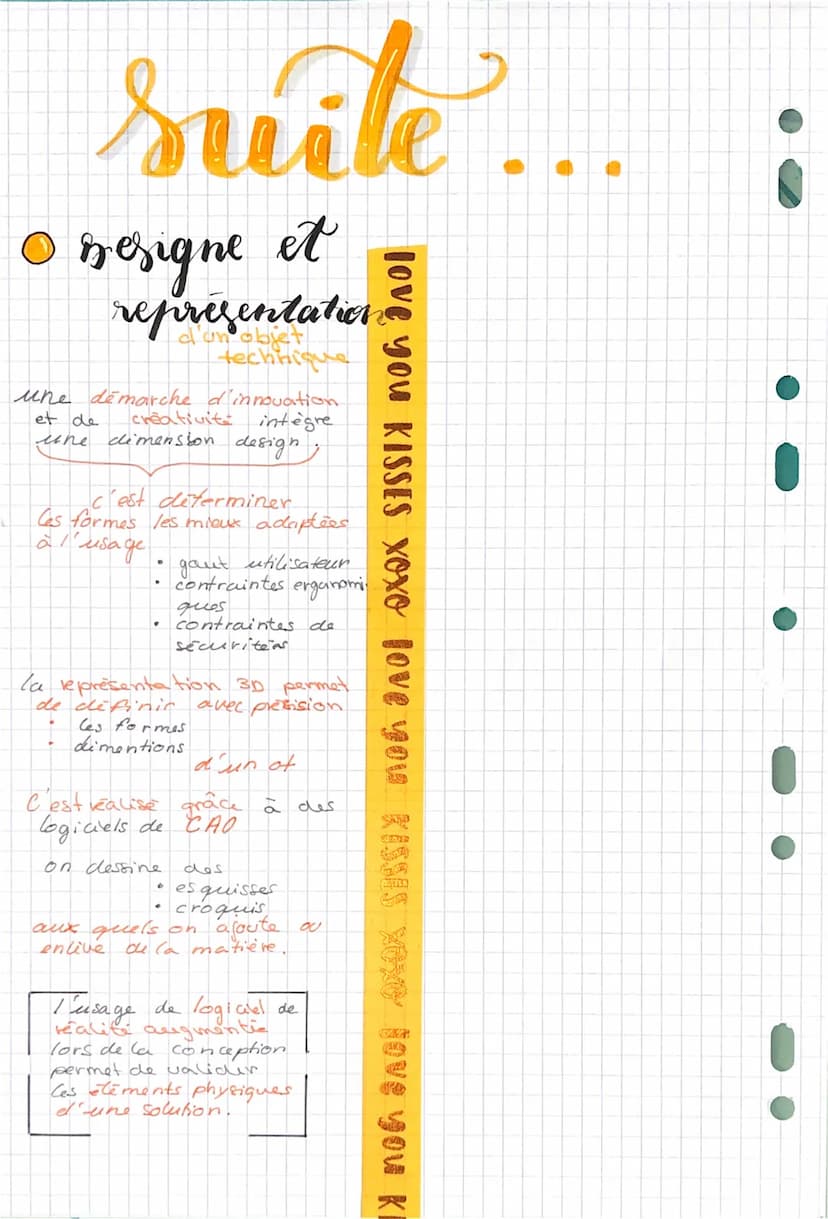 suite ...
Designe et
représentation
d'un objet
technique
une démarche d'innovation
et de créativité intègre
une dimension design.
c'est déterminer
les formes les mieux adaptées
à l'usage
• gout utilisateur
• contraintes ergonomi-
ques
• contraintes de
sécuritées
la représentation 3D permet
de définir avec présision
• les formes
• dimentions
d'un ot
C'est réalisé grâce à des
logiciels de CAO
on dessine des
• esquisses
• croquis
aux quels on ajoute ou
enlève de la matière.
l'usage de logiciel de
réalité augmentée
lors de la conception
permet de valider
les éléments physiques
d'une solution.
love you KISSES xoxo love you KISSES xoxo love you KI